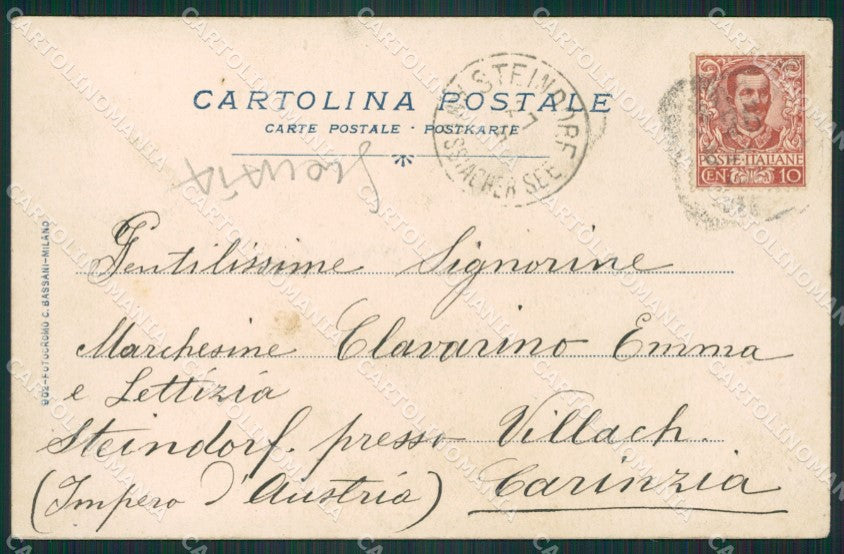 CARTOLINA POSTALE
CARTE POSTALE · POSTKARTE
STEINDORF
SSIACHER SEE
7
POSTE·ITALIANE
CEN 10
902-FOTOCROMO C. BASSANI-MILANO
Gentilissime Signorine
Marchesine Clavarino Emma
e Lettizia
Steindorf. presso Villach.
(Impero d'Austria) Carinzia
CARTOLINOMANIA